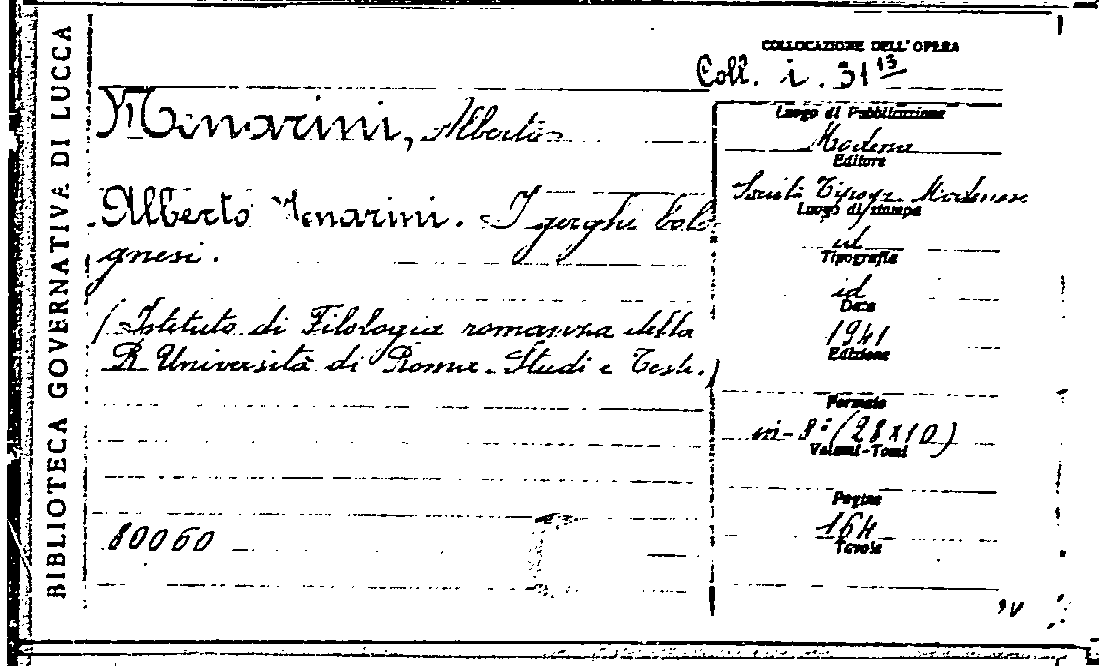 BIBLIOTECA GOVERNATIVA DI LUCCA
COLLOCAZIONE DELL'OPERA
Coll. i. 31 13
Menarini, Alberto
Alberto Menarini. I gerghi bolo-
gnesi.
(Istituto di Filologia romanza della
R. Università di Roma. Studi e Testi.)
80060
Luogo di Pubblicazione
Modena
Editore
Società Tipogr. Modenese
Luogo di stampa
id
Tipografia
id
Data
1941
Edizione
Formato
in-8° (28x10)
Volumi-Tomi
Pagine
164
Tavole